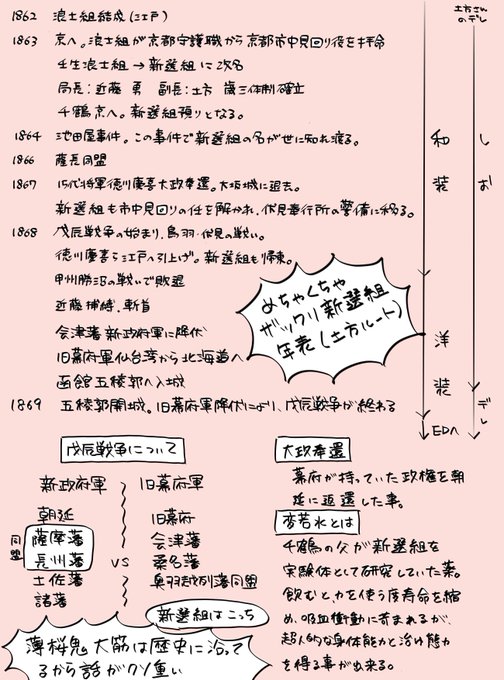 1862 浪士組結成(江戸)
1863 京へ。浪士組が京都守護職から京都市中見回り役を拝命
壬生浪士組→新選組に改名
局長:近藤 勇 副長:土方 歳三体制確立
千鶴京へ。新選組預りとなる。
1864 池田屋事件。この事件で新選組の名が世に知れ渡る。
1866 薩長同盟
1867 15代将軍徳川慶喜大政奉還。大坂城に退去。
新選組も市中見回りの任を解かれ、伏見奉行所の警備に移る。
1868 戊辰戦争の始まり、鳥羽・伏見の戦い。
徳川慶喜ら江戸へ引上げ。新選組も帰東。
甲州勝沼の戦いで敗退
近藤捕縛、斬首
会津藩新政府軍に降伏
旧幕府軍仙台湾から北海道へ
函館五稜郭へ入城
1869 五稜郭開城。旧幕府軍降伏により、戊辰戦争が終わる
土方さん
のデレ
和装
洋装
しお
デレ
EDへ
めちゃくちゃ
ザックリ新選組
年表(土方ルート)
戊辰戦争について
新政府軍 旧幕府軍
朝廷 旧幕府
同盟
薩摩藩 会津藩
長州藩 vs 桑名藩
土佐藩 奥羽越列藩同盟
諸藩
新選組はこっち
薄桜鬼大筋は歴史に沿って
るから話がクソ重い
大政奉還
幕府が持っていた政権を朝
廷に返還した事。
変若水とは
千鶴の父が新選組を
実験体として研究していた薬。
飲むと、力を使う度寿命を縮
め、吸血衝動に苛まれるが、
超人的な身体能力と治ゆ能力
を得る事が出来る。